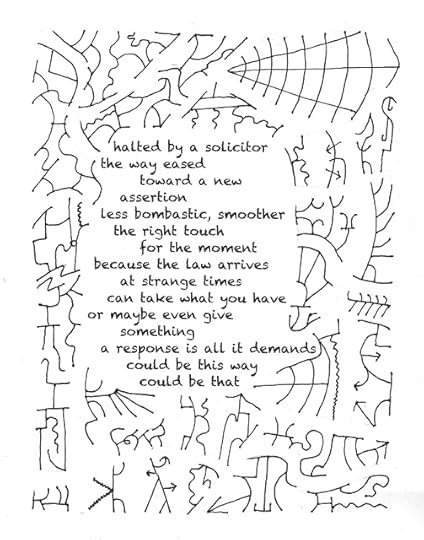 halted by a solicitor
the way eased
toward a new
assertion
less bombastic, smoother
the right touch
for the moment
because the law arrives
at strange times
can take what you have
or maybe even give
something
a response is all it demands
could be this way
could be that